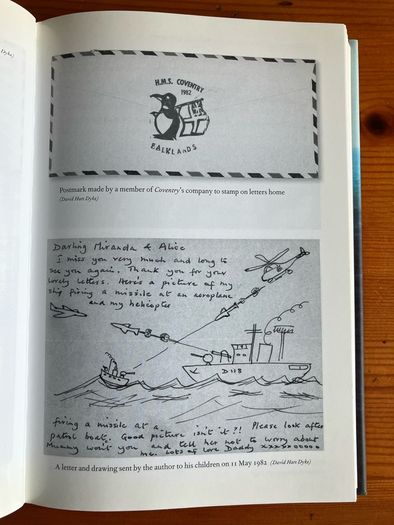 H.M.S. COVENTRY
1982
FALKLANDS
Postmark made by a member of Coventry's company to stamp on letters home
(David Hart Dyke)
Darling Miranda & Alice
I miss you very much and long to
see you again. Thank you for your
lovely letters. Here's a picture of my
ship firing a missile at an aeroplane
and my helicopter
D 118
firing a missile at a
patrol boat. Good picture isn't it?! Please look after
Mummy won't you and tell her not to worry about
me. Lots of love Daddy xxxxxooooo
A letter and drawing sent by the author to his children on 11 May 1982 (David Hart Dyke)